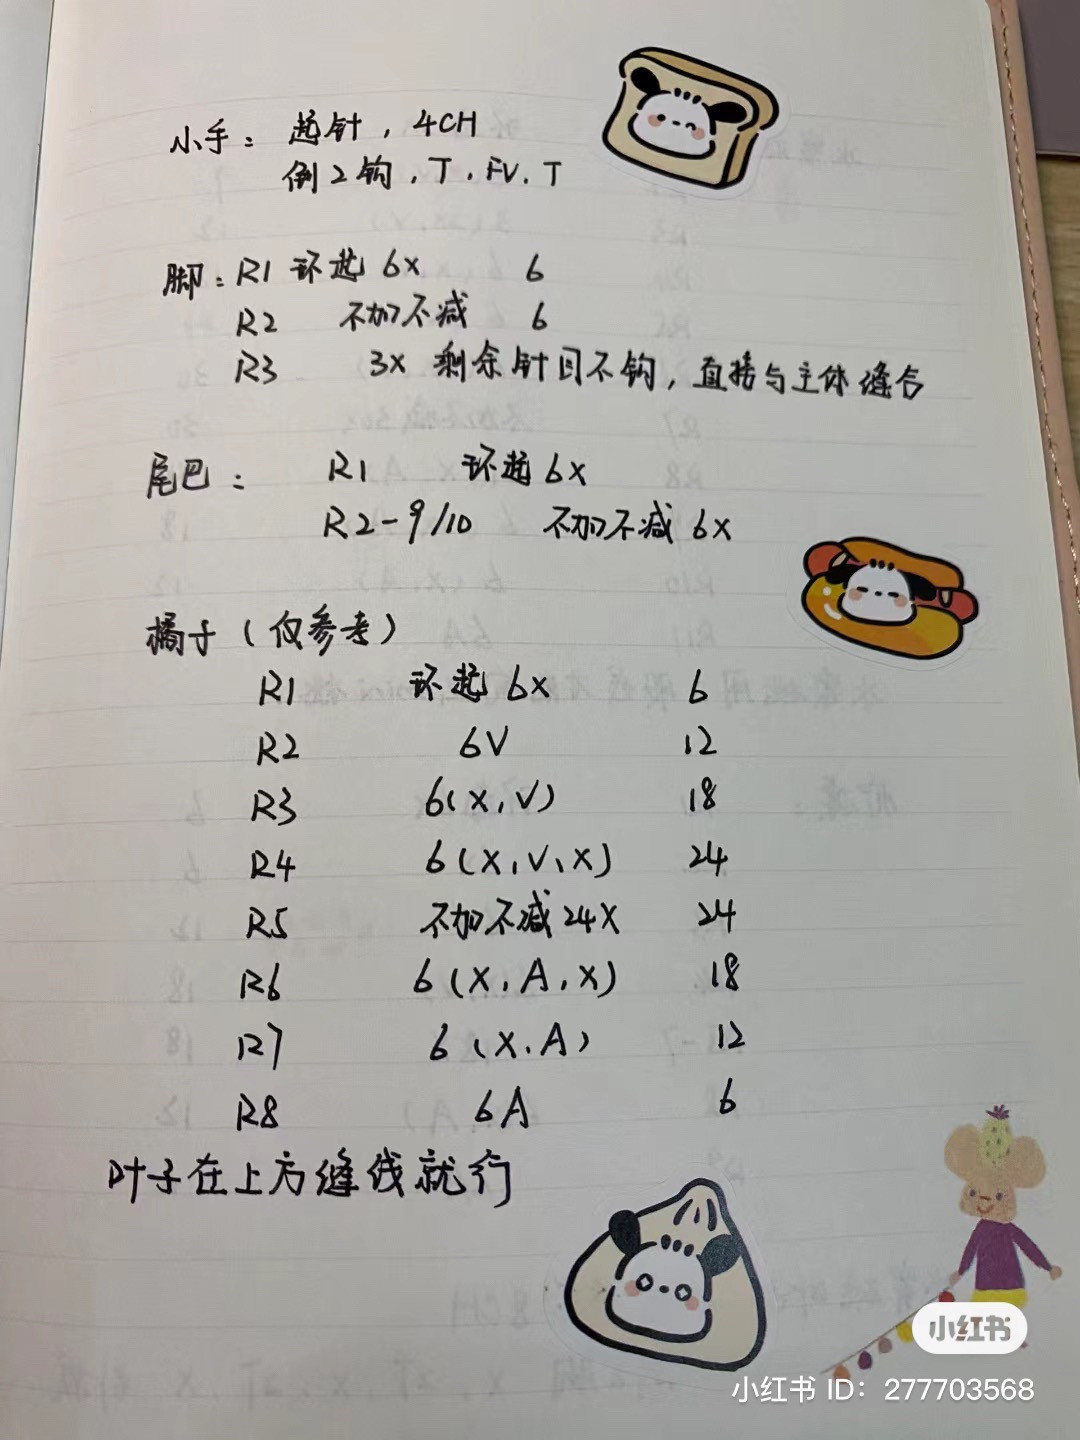 小手： 起针，4CH
倒2钩，T，FV，T
脚：R1 环起 6X 6
R2 不加不减 6
R3 3X 剩余针目不钩，直接与主体缝合
尾巴： R1 环起 6X
R2-9/10 不加不减 6X
橘子（仅参考）
R1 环起 6X 6
R2 6V 12
R3 6(X,V) 18
R4 6(X,V,X) 24
R5 不加不减24X 24
R6 6(X,A,X) 18
R7 6(X,A) 12
R8 6A 6
叶子在上方缝线就行
小红书
小红书 ID：277703568